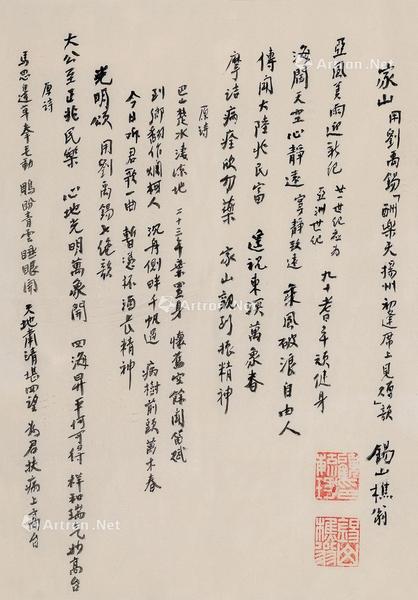 家山 用劉禹錫「酬樂天揚州初逢席上見贈」韻 錫山樵翁
亞風美雨迎新紀 廿一世紀應為亞洲世紀 九十耆年頑健身
海闊天空心靜遠 寧靜致遠 乘風破浪自由人
傳聞大陸兆民富 遙祝東吳萬象春
摩詰病痊欣勿藥 家山親到振精神
原詩
巴山楚水淒涼地 二十三年棄置身 懷舊空餘聞笛賦
到鄉翻似爛柯人 沉舟側畔千帆過 病樹前頭萬木春
今日听君歌一曲 暫憑杯酒長精神
光明頌 用劉禹錫七絕韻
大公至正兆民樂 心地光明萬象開 四海昇平何可得 祥和瑞气抄高台
原詩
馬思邊草拳毛動 鵰盼青雲睡眼開 天地肅清堪四望 為君扶病上高台
Art-Non.Net
Art-Non.Net
Art-Non.Net
Art-Non.Net
Art-Non.Net